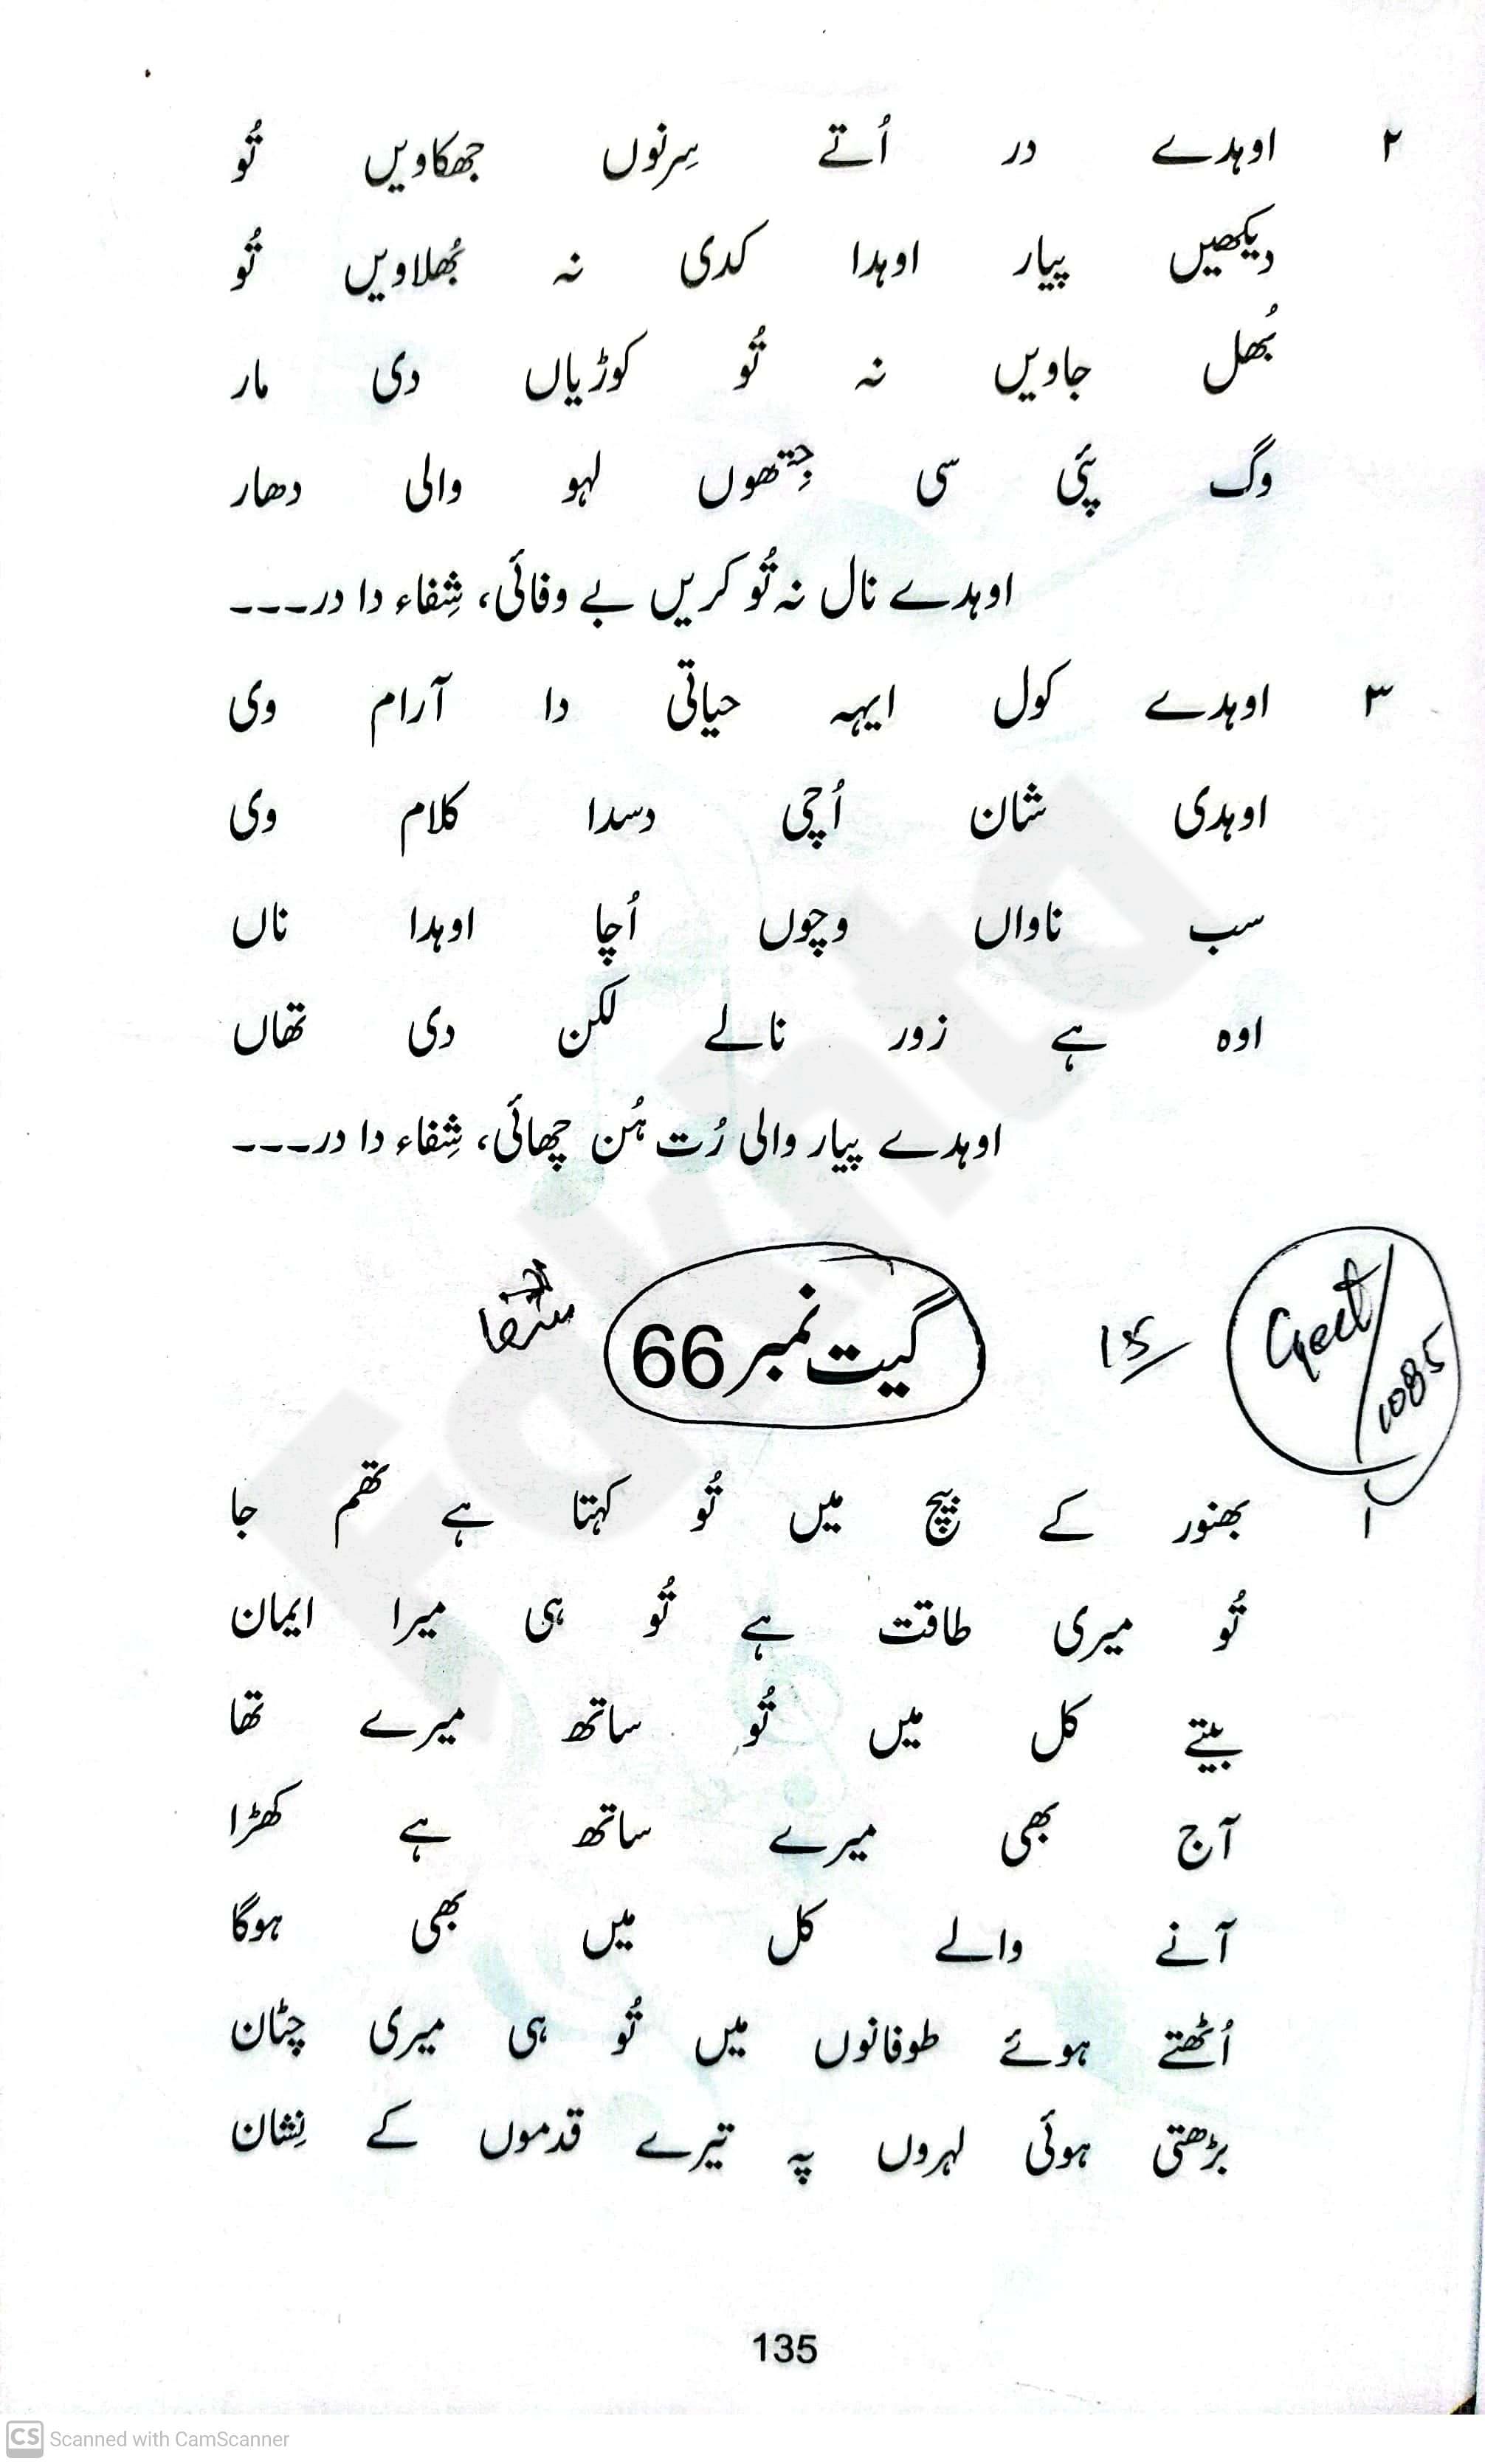 ۲ اوہدے در اُتے سِرنوں جھکاویں تُو
دیکھیں پیار اوہدا کدی نہ بُھلاویں تُو
بُھل جاویں نہ تُو کوڑیاں دی مار
وگ پئی سی جِتھوں لہو والی دھار
اوہدے نال نہ تُو کریں بے وفائی، شِفاء دا در۔۔۔
۳ اوہدے کول ایہہ حیاتی دا آرام وی
اوہدی شان اُچی دسدا کلام وی
سب ناواں وچوں اُچا اوہدا ناں
اوہ ہے زور نالے لکن دی تھاں
اوہدے پیار والی رُت ہُن چھائی، شِفاء دا در۔۔۔
Geet/1085
15/
گیت نمبر 66
۱ بھنور کے بیچ میں تُو کہتا ہے تھم جا
تُو میری طاقت ہے تُو ہی میرا ایمان
بیتے کل میں تُو ساتھ میرے تھا
آج بھی میرے ساتھ ہے کھڑا
آنے والے کل میں بھی ہوگا
اُٹھتے ہوئے طوفانوں میں تُو ہی میری چٹان
بڑھتی ہوئی لہروں پہ تیرے قدموں کے نِشان
135
Fakhta
CS Scanned with CamScanner